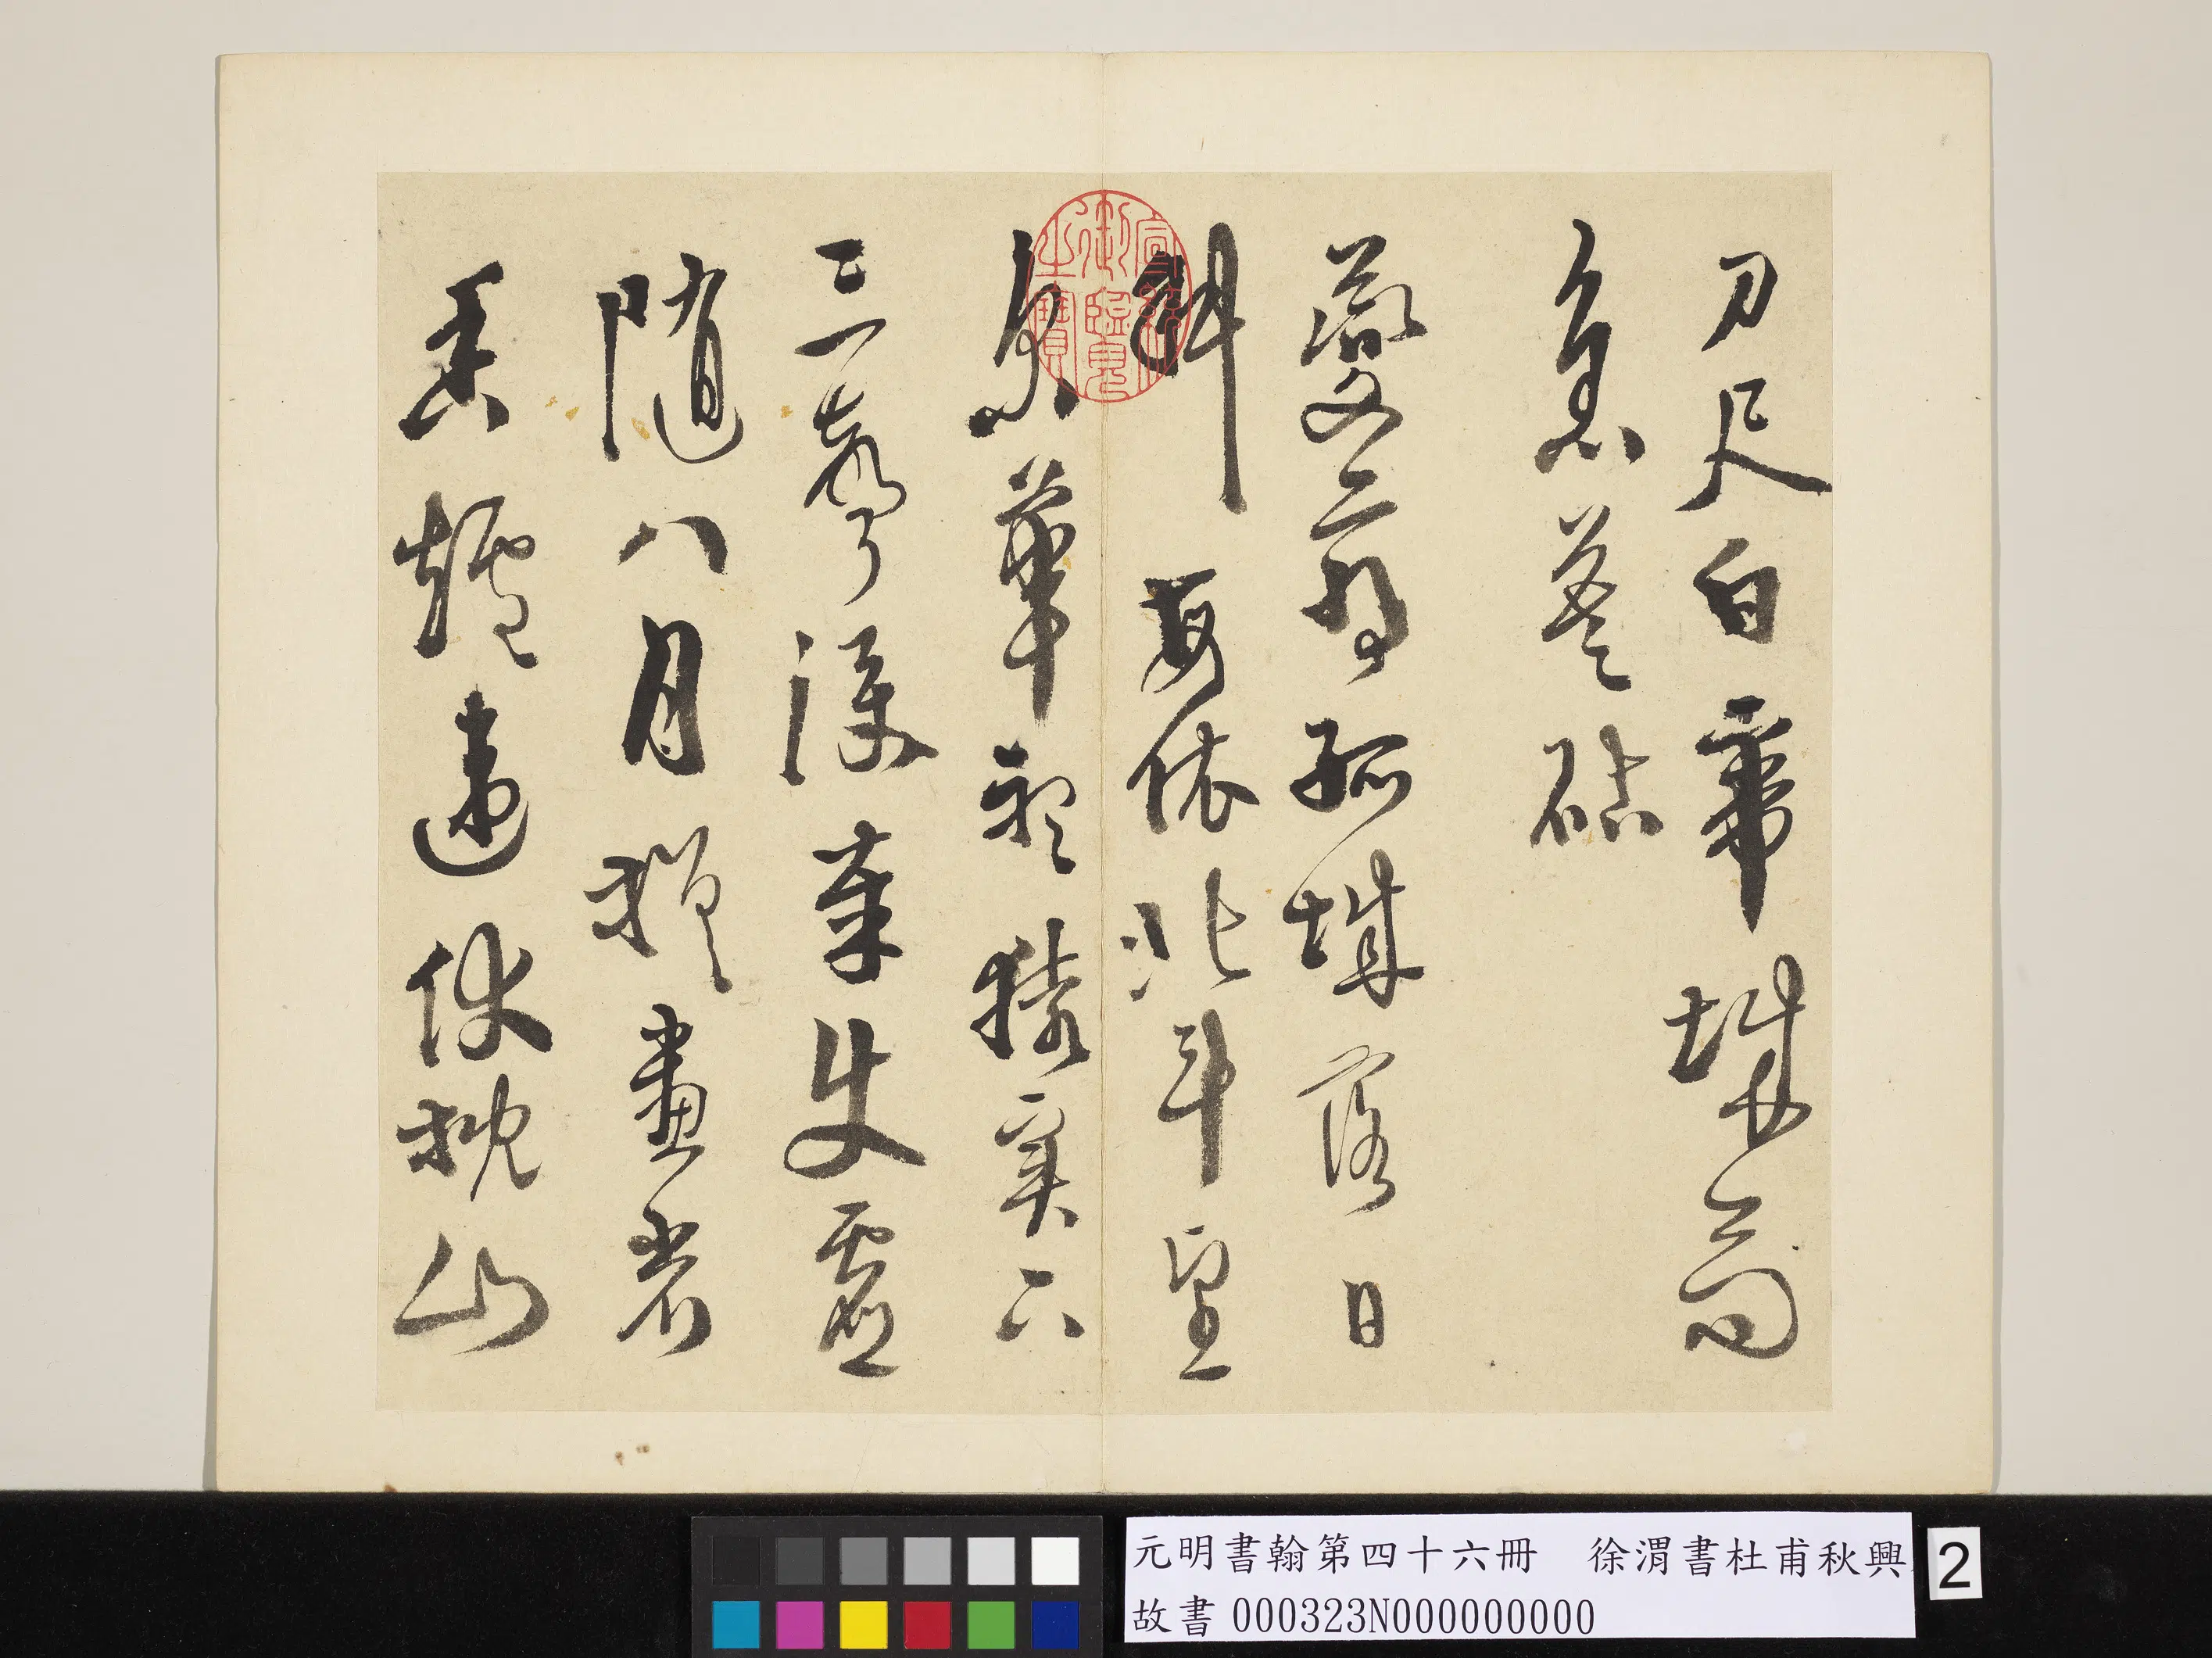 刀尺白帝城高
急暮砧
夔府孤城落日
斜每依北斗望
京華聽猿實下
三聲淚奉使虛
隨八月槎畫省
香爐違伏枕山
宣統
御覽
之寶
元明書翰第四十六冊　徐渭書杜甫秋興
故書 000323N000000000
2